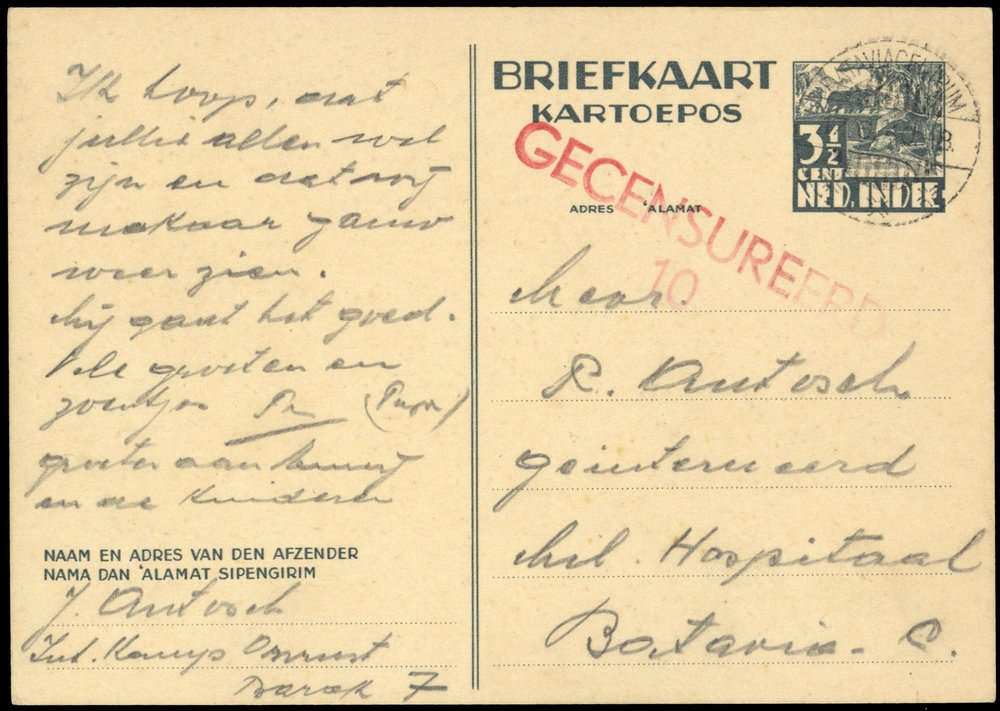 Ik hoop, dat
jullie allen wel
zijn en dat wij
mekaar gauw
weer zien.
Mij gaat het goed.
Vele groeten en
zoentjes
groeten aan
en de Kinderen
NAAM EN ADRES VAN DEN AFZENDER
NAMA DAN 'ALAMAT SIPENGIRIM
J. Antosch
Int. Kamp Onrust
Barak 7
BRIEFKAART
KARTOEPOS
3½
CENT
NED. INDIE
BATAVIACENTRUM
GECENSUREERD
10
ADRES 'ALAMAT
Mevr.
R. Antosch
geinterneerd
Mil. Hospitaal
Batavia-C.